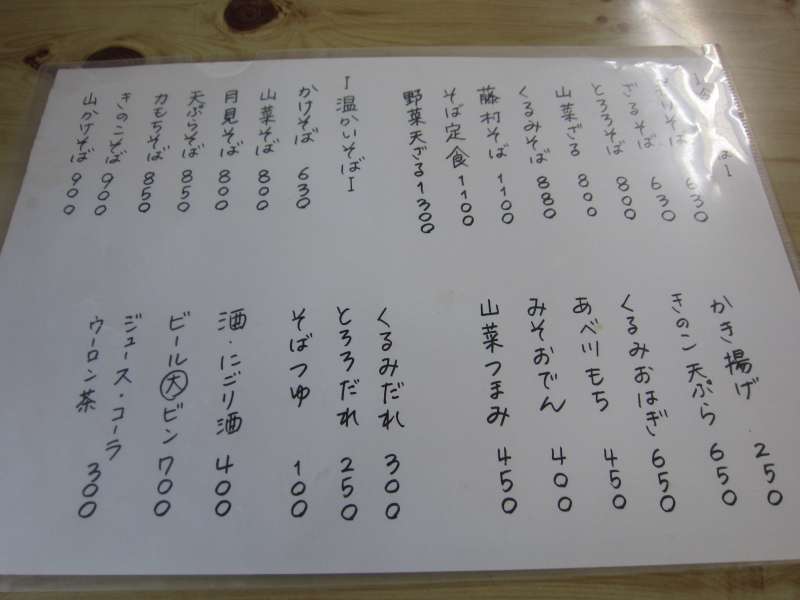 そば 630
ざるそば 630
とろろそば 800
山菜ざる 800
くるみそば 880
藤村そば 1100
そば定食 1100
野菜天ざる 1300
I 温かいそば I
かけそば 630
山菜そば 800
月見そば 800
天ぷらそば 850
力もちそば 850
きのこそば 900
山かけそば 900
かき揚げ 250
きのこ天ぷら 650
くるみおはぎ 650
あべ川もち 450
みそおでん 400
山菜つまみ 450
くるみだれ 300
とろろだれ 250
そばつゆ 100
酒・にごり酒 400
ビール大ビン 700
ジュース・コーラ
ウーロン茶 300